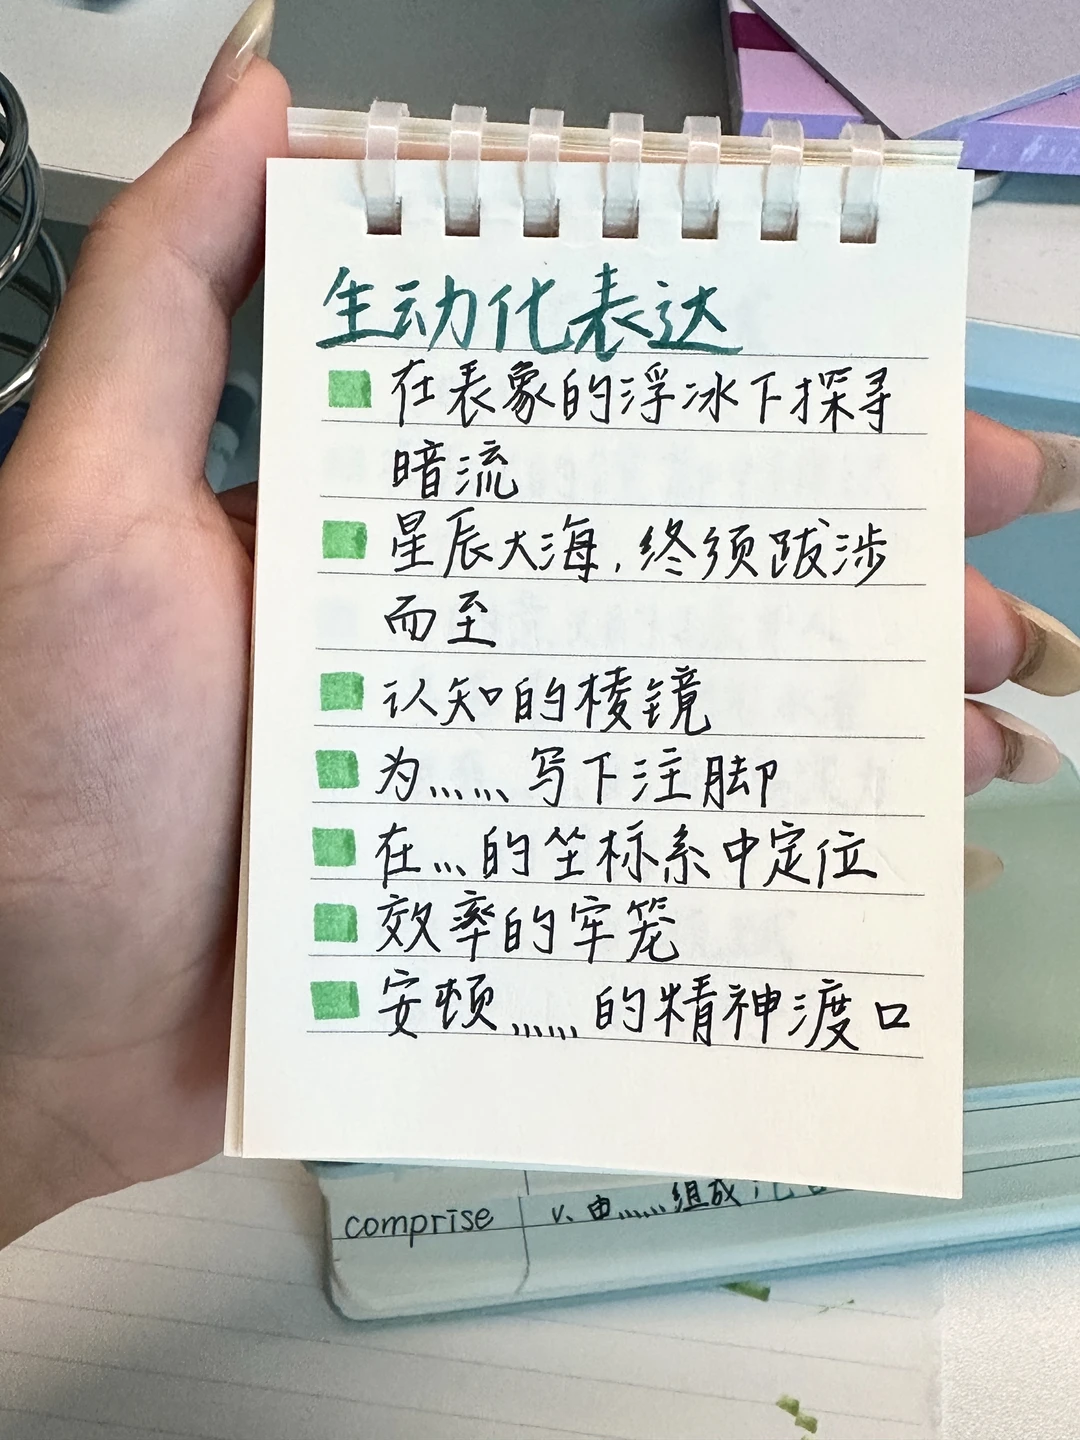 生动化表达
在表象的浮冰下探寻
暗流
星辰大海,终须跋涉
而至
认知的棱镜
为……写下注脚
在…的坐标系中定位
效率的牢笼
安顿……的精神渡口
comprise
v. 由……组成